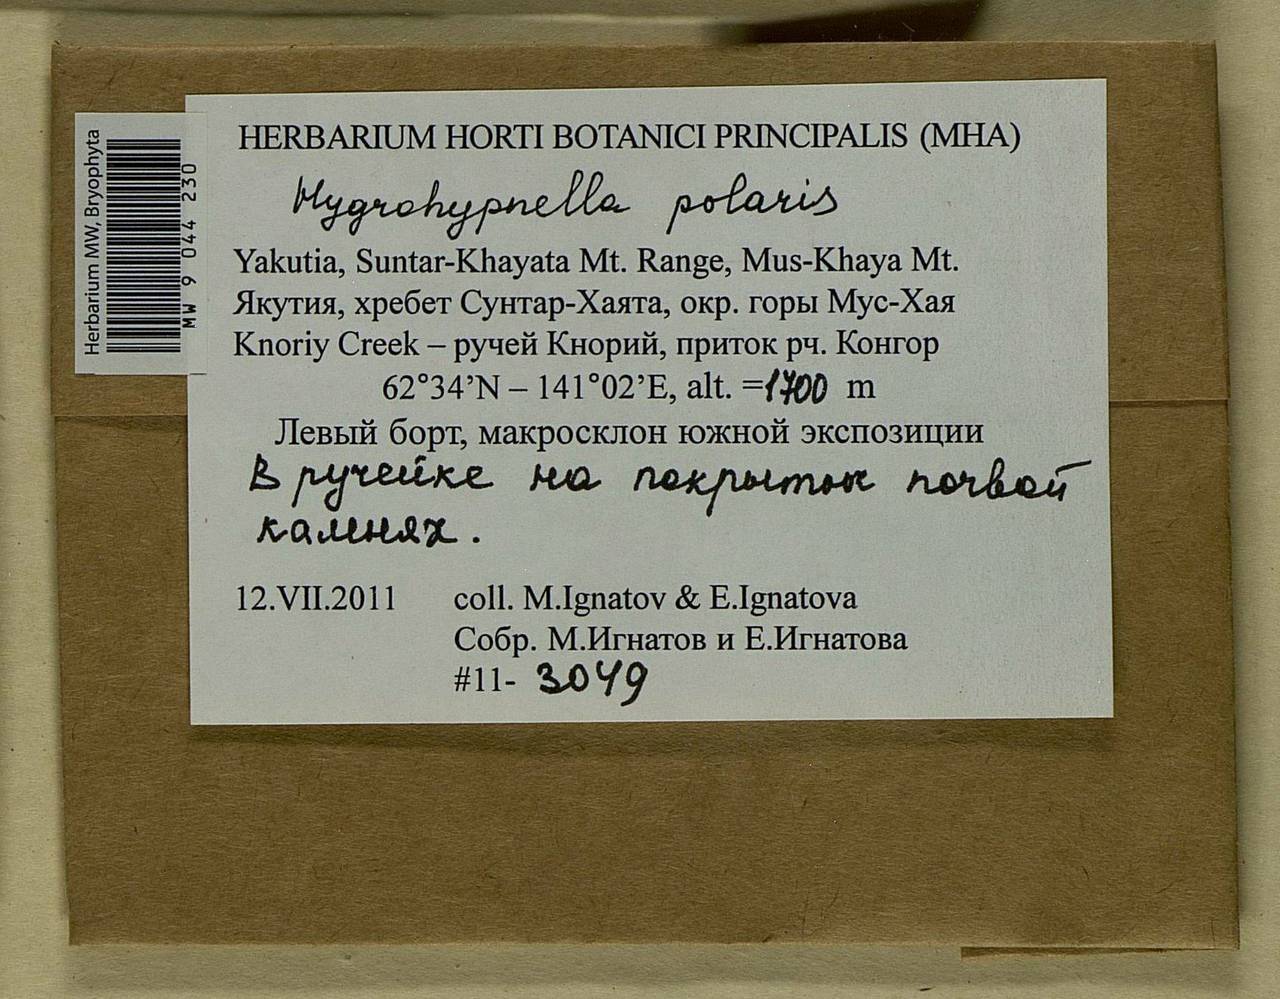 HERBARIUM HORTI BOTANICI PRINCIPALIS (MHA)
Hygrohypnella polaris
Yakutia, Suntar-Khayata Mt. Range, Mus-Khaya Mt.
Якутия, хребет Сунтар-Хаята, окр. горы Мус-Хая
Knoriy Creek – ручей Кнорий, приток рч. Конгор
62°34’N – 141°02’E, alt. =1700 m
Левый борт, макросклон южной экспозиции
В ручейке на покрытых почвой
камнях.
12.VII.2011 coll. M.Ignatov & E.Ignatova
Собр. М.Игнатов и Е.Игнатова
#11- 3049
Herbarium MW, Bryophyta
MW 9 044 230